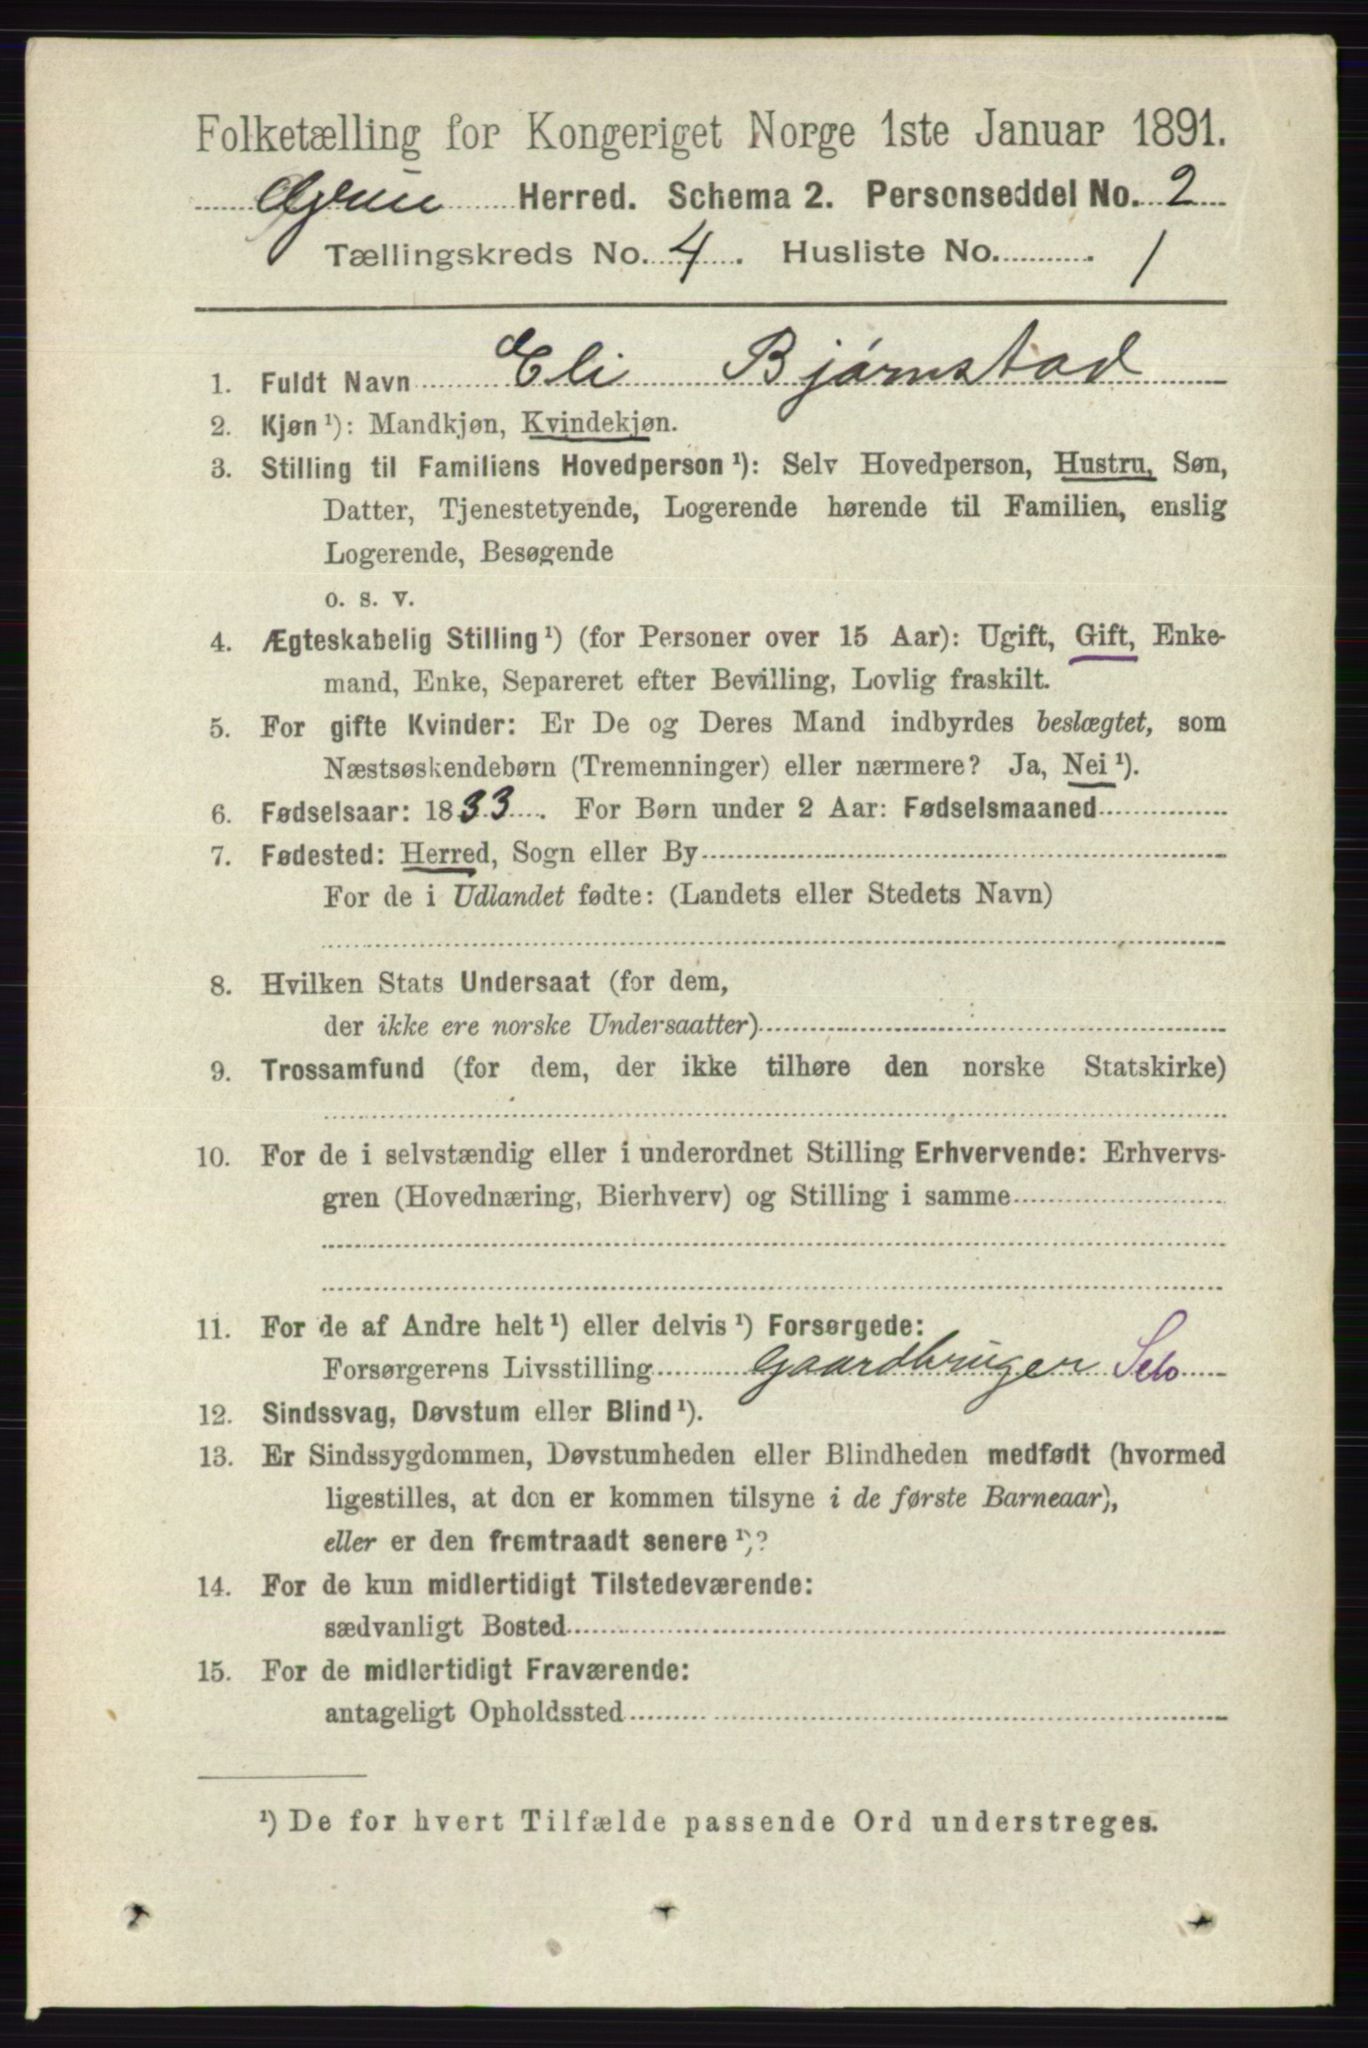 Folketælling for Kongeriget Norge 1ste Januar 1891.
Grue Herred. Schema 2. Personseddel No. 2
Tællingskreds No. 4. Husliste No. 1
1. Fuldt Navn Eli Bjørnstad
2. Kjøn ¹): Mandkjøn, Kvindekjøn.
3. Stilling til Familiens Hovedperson ¹): Selv Hovedperson, Hustru, Søn,
Datter, Tjenestetyende, Logerende hørende til Familien, enslig
Logerende, Besøgende
o. s. v.
4. Ægteskabelig Stilling ¹) (for Personer over 15 Aar): Ugift, Gift, Enke-
mand, Enke, Separeret efter Bevilling, Lovlig fraskilt.
5. For gifte Kvinder: Er De og Deres Mand indbyrdes beslægtet, som
Næstsøskendebørn (Tremenninger) eller nærmere? Ja, Nei ¹).
6. Fødselsaar: 1833. For Børn under 2 Aar: Fødselsmaaned
7. Fødested: Herred, Sogn eller By
For de i Udlandet fødte: (Landets eller Stedets Navn)
8. Hvilken Stats Undersaat (for dem,
der ikke ere norske Undersaatter)
9. Trossamfund (for dem, der ikke tilhøre den norske Statskirke)
10. For de i selvstændig eller i underordnet Stilling Erhvervende: Erhvervs-
gren (Hovednæring, Bierhverv) og Stilling i samme
11. For de af Andre helt ¹) eller delvis ¹) Forsørgede:
Forsørgerens Livsstilling Gaardbruger Selv
12. Sindssvag, Døvstum eller Blind ¹).
13. Er Sindssygdommen, Døvstumheden eller Blindheden medfødt (hvormed
ligestilles, at den er kommen tilsyne i de første Barneaar),
eller er den fremtraadt senere ¹)?
14. For de kun midlertidigt Tilstedeværende:
sædvanligt Bosted
15. For de midlertidigt Fraværende:
antageligt Opholdssted
¹) De for hvert Tilfælde passende Ord understreges.